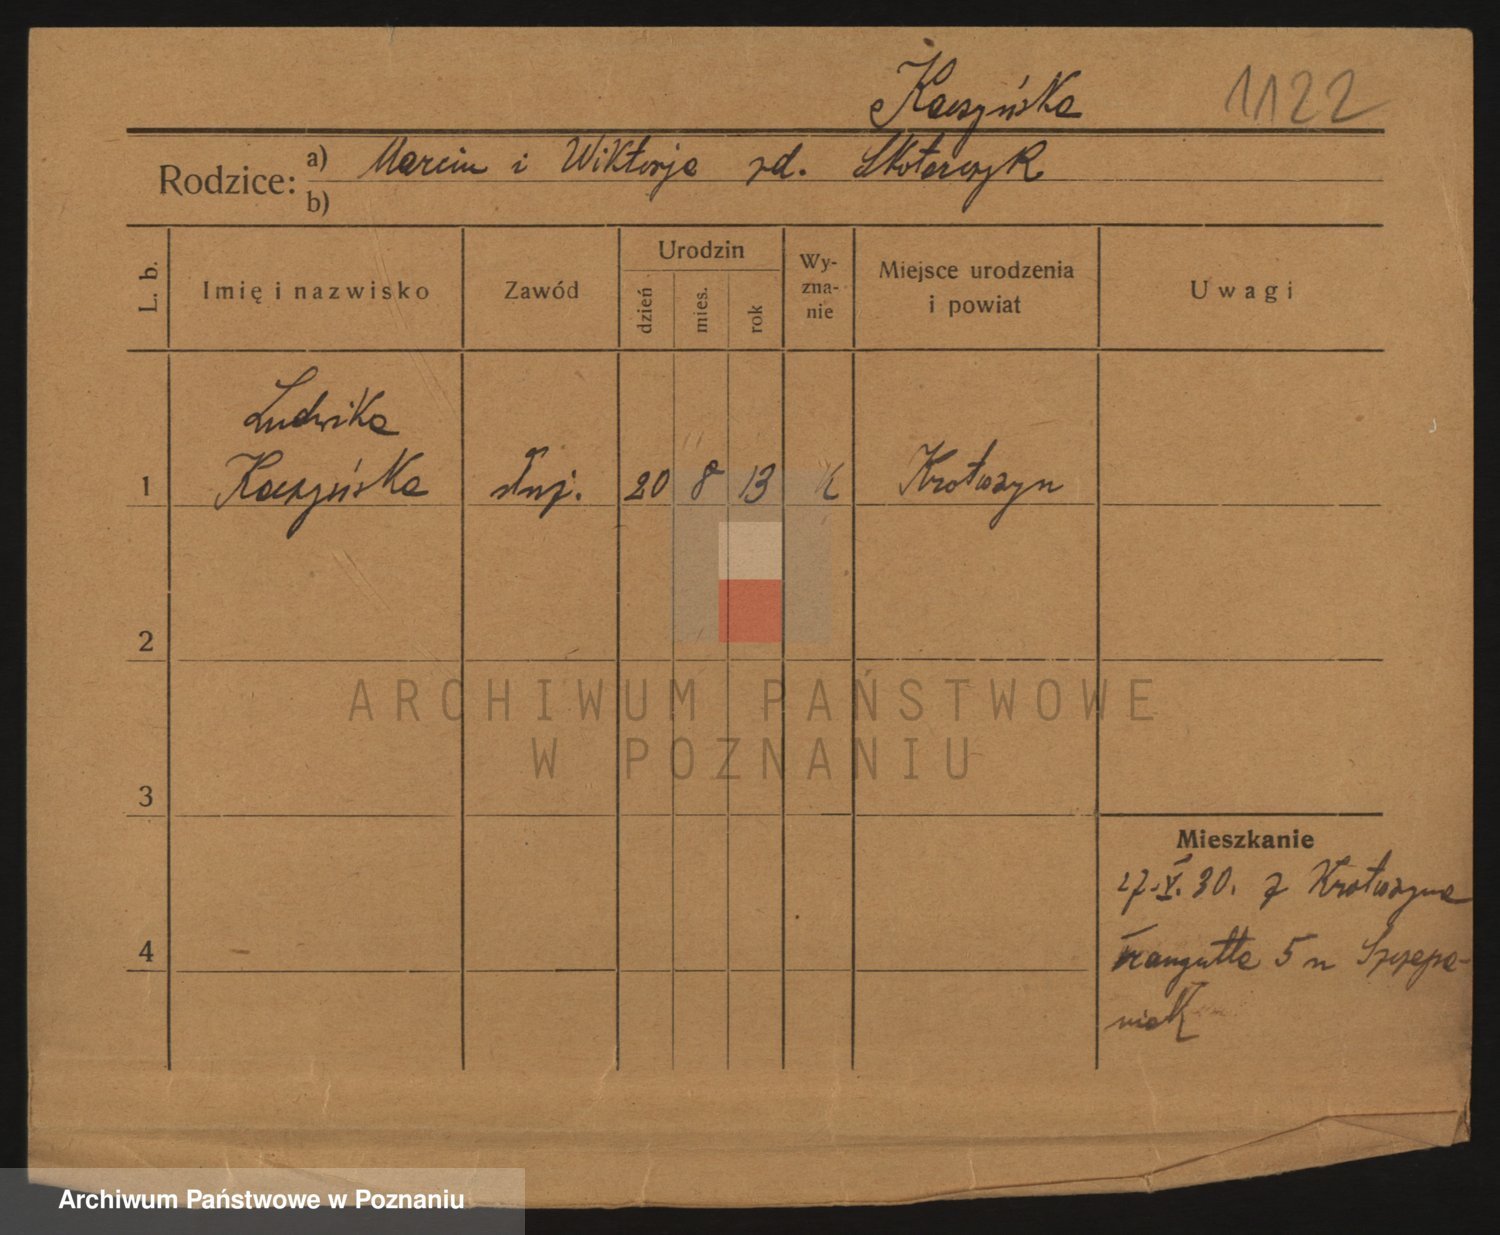 Kaczyńska 1122
Rodzice: a) Marcin i Wiktorja zd. Skotarczyk
b)
L. b. Imię i nazwisko Zawód Urodzin dzień mies. rok Wyznanie Miejsce urodzenia i powiat Uwagi
Ludwika
1 Kaczyńska służ. 20 8 13 k Krotoszyn
2
ARCHIWUM PAŃSTWOWE
W POZNANIU
3
Mieszkanie
27.V.30. z Krotoszyna
4 Traugutta 5 u Szczepa-
niak
Archiwum Państwowe w Poznaniu